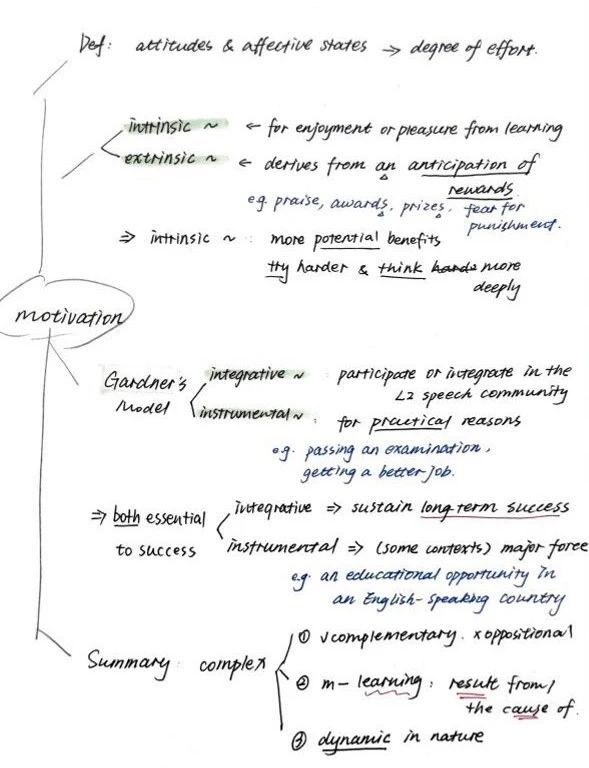 Def: attitudes & affective states → degree of effort.
intrinsic ~ ← for enjoyment or pleasure from learning
extrinsic ~ ← derives from an anticipation of
rewards.
e.g. praise, awards, prizes, fear for
punishment.
⇒ intrinsic ~ : more potential benefits
try harder & think more
deeply
motivation
Gardner's
Model
integrative ~ participate or integrate in the
L2 speech community
instrumental ~ : for practical reasons
e.g. passing an examination,
getting a better job.
⇒ both essential
to success
integrative ⇒ sustain long term success
instrumental ⇒ (some contexts) major force
e.g. an educational opportunity in
an English-speaking country
Summary: complex
① √complementary. ×oppositional
② m-learning: result from /
the cause of.
③ dynamic in nature